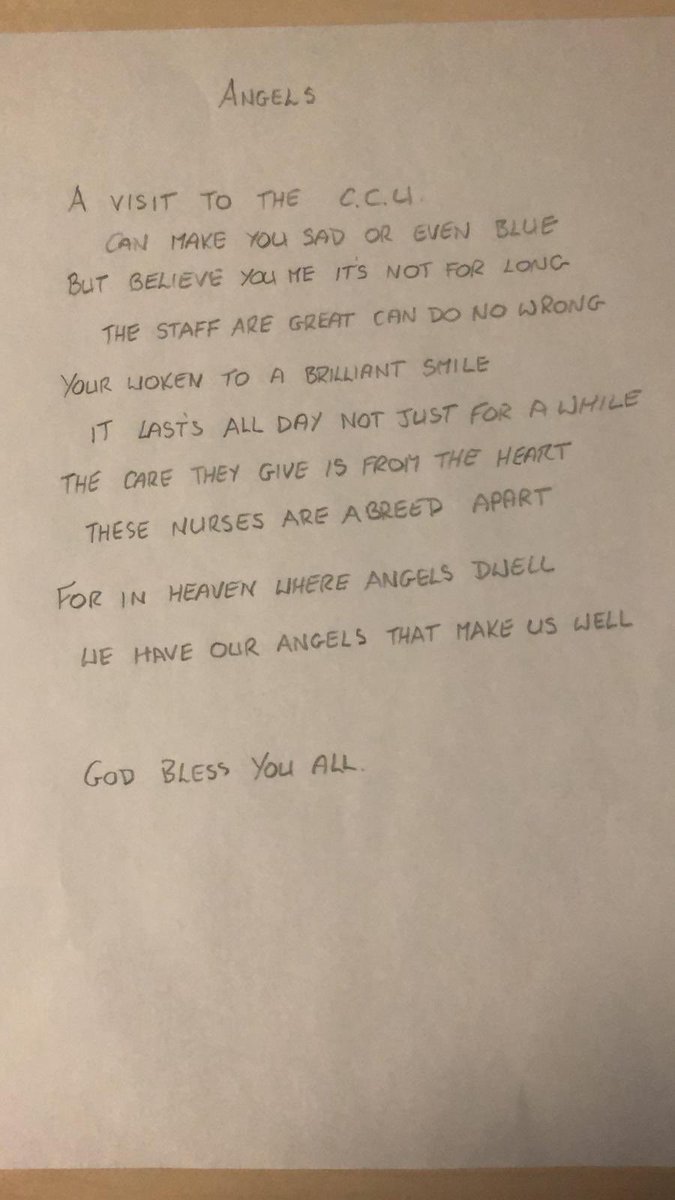 ANGELS
A VISIT TO THE C.C.U.
CAN MAKE YOU SAD OR EVEN BLUE
BUT BELIEVE YOU ME IT'S NOT FOR LONG
THE STAFF ARE GREAT CAN DO NO WRONG
YOUR WOKEN TO A BRILLIANT SMILE
IT LAST'S ALL DAY NOT JUST FOR A WHILE
THE CARE THEY GIVE IS FROM THE HEART
THESE NURSES ARE A BREED APART
FOR IN HEAVEN WHERE ANGELS DWELL
WE HAVE OUR ANGELS THAT MAKE US WELL
GOD BLESS YOU ALL.